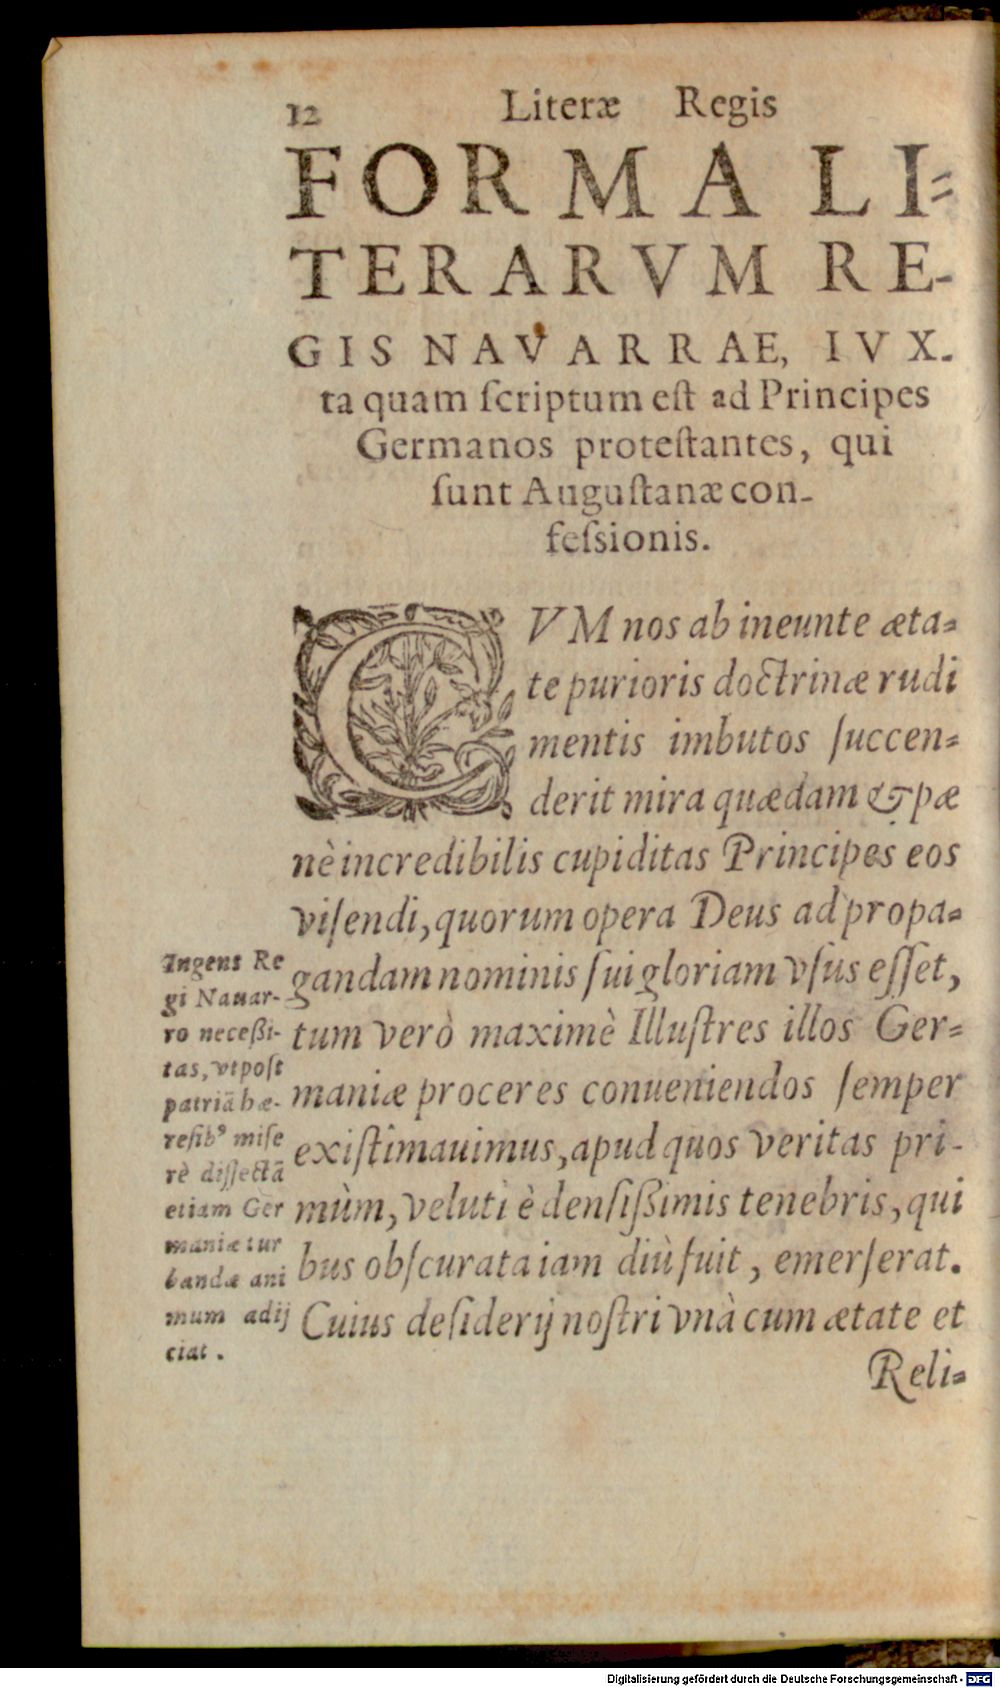 12 Literæ Regis
FORMA LI-
TERARVM RE-
GIS NAVARRAE, IVX-
ta quam ſcriptum eſt ad Principes
Germanos proteſtantes, qui
ſunt Auguſtanæ con-
feſsionis.
CVM nos ab ineunte æta-
te purioris doctrinæ rudi
mentis imbutos ſuccen-
derit mira quædam & pæ
nè incredibilis cupiditas Principes eos
viſendi, quorum opera Deus ad propa-
gandam nominis ſui gloriam vſus eſſet,
tum verò maximè Illuſtres illos Ger-
maniæ proceres conueniendos ſemper
exiſtimauimus, apud quos veritas pri-
mùm, veluti è denſiſsimis tenebris, qui
bus obſcurata iam diù fuit, emerſerat.
Cuius deſiderij noſtri vnà cum ætate et
Reli-
Ingens Re
gi Nauar-
ro neceßi-
tas, vt poſt
patriã hæ-
reſibꝰ miſe
rè diſſectã
etiam Ger
maniæ tur
bandæ ani
mum adij
ciat.
Digitalisierung gefördert durch die Deutsche Forschungsgemeinschaft - DFG